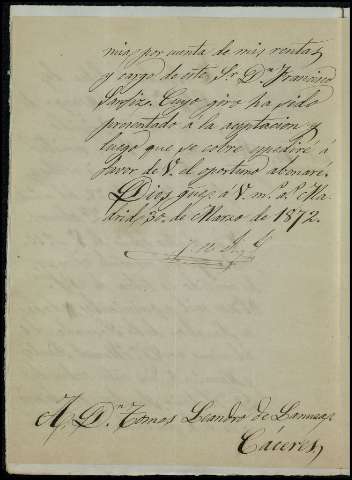 mias por cuenta de mis rentas,
y cargo de este Sr. Dn. Francisco
Cuyo giro ha sido
presentado á la aceptacion y
luego que se cobre espediré á
favor de V. el oportuno abonaré.
Dios gue. á V. m.s a.s Ma-
drid, 30 de Marzo de 1872.
A Dn. Tomas Leandro de
Cáceres,